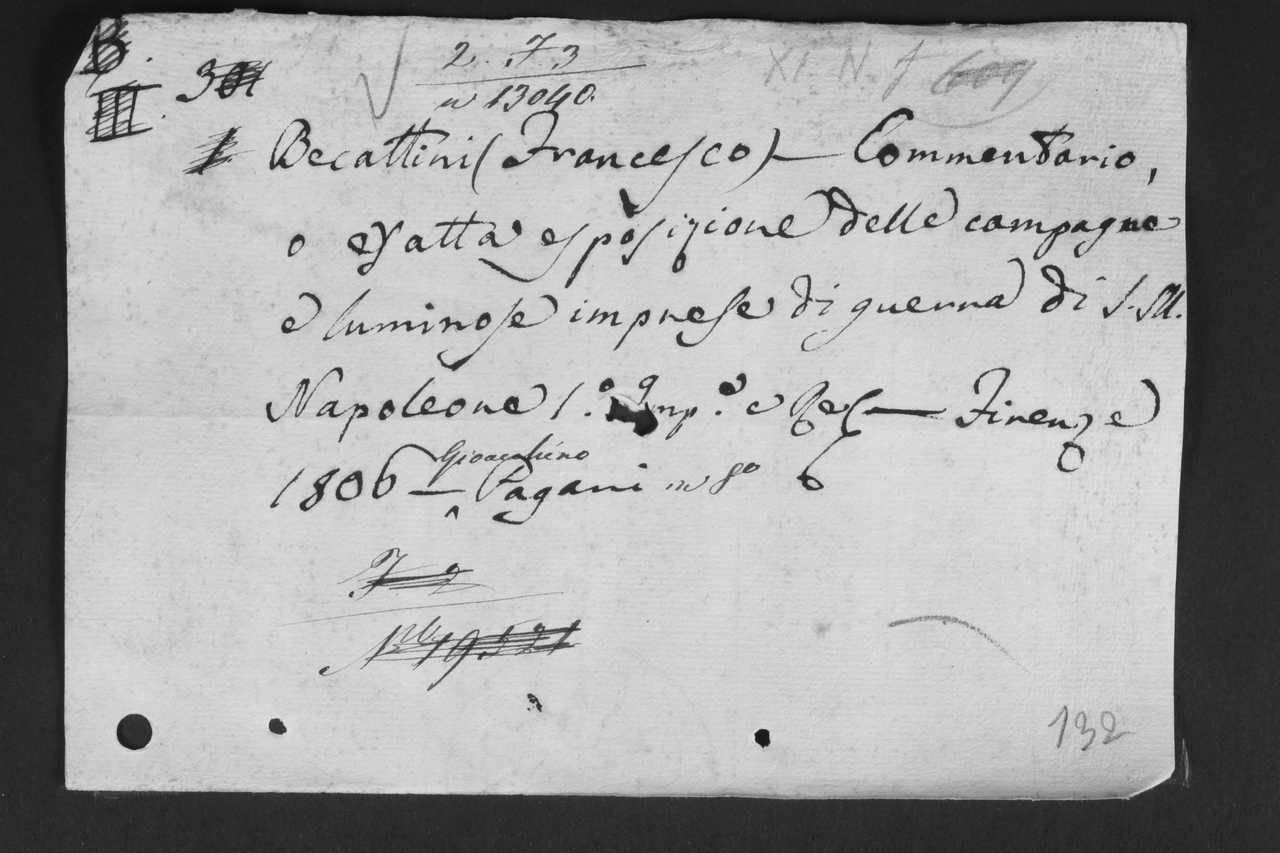 B. 2. 7. 3 XI. N. f
III. 3 n 13040.
Becattini (Francesco) — Commentario,
o esatta esposizione delle campagne
e luminose imprese di guerra di S. M.
Napoleone 1.º Imp.e e Re — Firenze
1806 — Gioacchino Pagani in 8º 6
7 2
Nº 19521
132